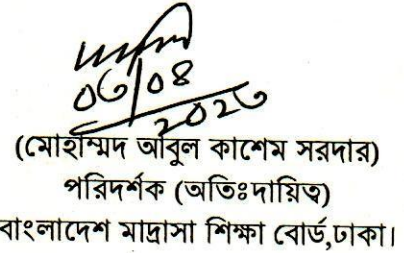 ০৩/০৪
২০২৩
(মোহাম্মদ আবুল কাশেম সরদার)
পরিদর্শক (অতিঃদায়িত্ব)
বাংলাদেশ মাদ্রাসা শিক্ষা বোর্ড,ঢাকা।